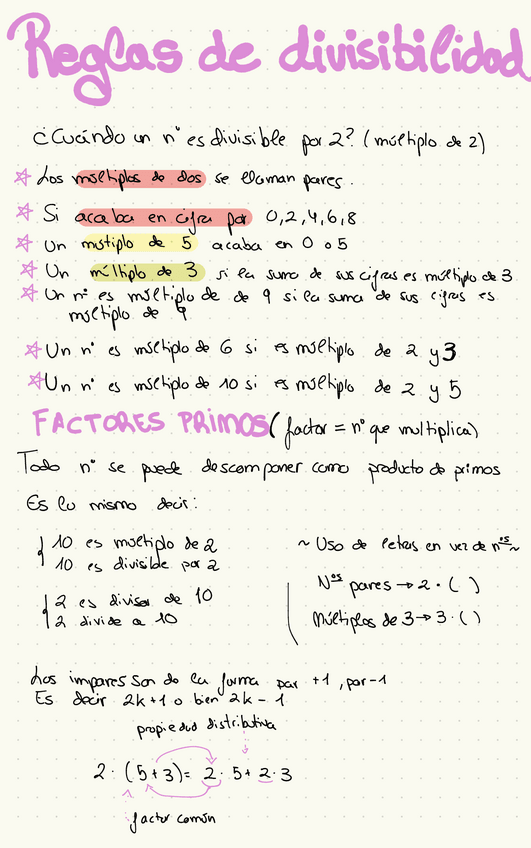 Reglas de divisibilidad
¿Cuándo un nº es divisible por 2? (múltiplo de 2)
Los múltiplos de dos se llaman pares.
Si acaba en cifra par 0,2,4,6,8
Un mútiplo de 5 acaba en 0 o 5
Un múltiplo de 3 si la suma de sus cifras es múltiplo de 3
Un nº es múltiplo de de 9 si la suma de sus cifras es
múltiplo de 9
Un nº es múltiplo de 6 si es múltiplo de 2 y 3
Un nº es múltiplo de 10 si es múltiplo de 2 y 5
FACTORES PRIMOS (factor = nº que multiplica)
Todo nº se puede descomponer como producto de primos
Es lo mismo decir:
10 es múltiplo de 2
10 es divisible por 2
2 es divisor de 10
2 divide a 10
~ Uso de letras en vez de nºs ~
Nºs pares → 2 · ( )
Múltiplos de 3 → 3 · ( )
Los impares son de la forma par +1, par -1
Es decir 2k+1 o bien 2k-1
propiedad distributiva
2 · (5+3) = 2 · 5 + 2 · 3
factor común